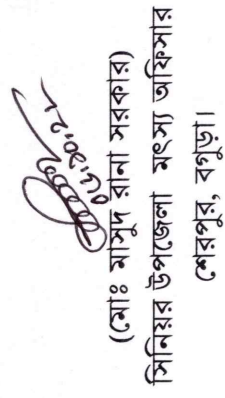 (মোঃ মাসুদ রানা সরকার)
সিনিয়র উপজেলা মৎস্য অফিসার
শেরপুর, বগুড়া।